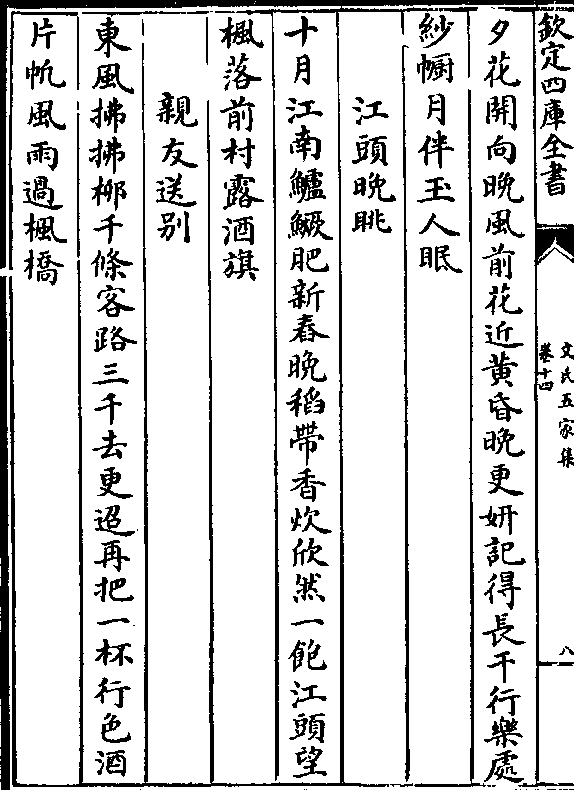 欽定四庫全書
文氏五家集
卷十四
八
夕花開向晚風前花近黃昏晚更妍記得長干行樂處
紗幮月伴玉人眠
江頭晚眺
十月江南鱸鱖肥新舂晚稻帶香炊欣然一飽江頭望
楓落前村露酒旗
親友送别
東風拂拂柳千條客路三千去更迢再把一杯行色酒
片帆風雨過楓橋